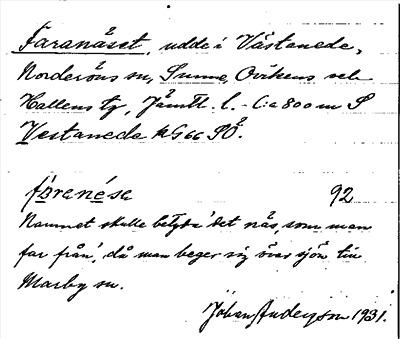 Faranäset, udde i Västanede,
Norderöns sn, Sunne, Ovikens och
Hallens tg, Jämtl. l. - C:a 800 m S
Vestaneda kG66 SÖ.
faranése 92
Namnet skulle betyda 'det näs, som man
far från', då man beger sig över sjön till
Marby sn.
Johan Anderson 1931.